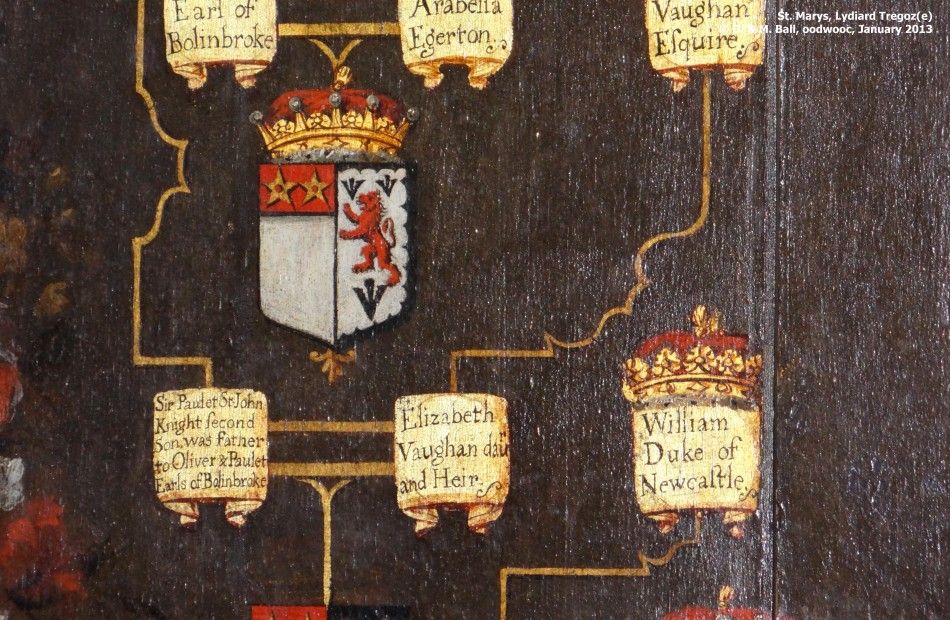 St. Marys, Lydiard Tregoz(e)
M. Ball, oodwooc, January 2013
Earl of
Bolinbroke
Arabella
Egerton.
Vaughan
Eſquire.
Sir Paulet St John
Knight ſecond
Son, was father
to Oliver & Paulet
Earls of Bolinbroke
Elizabeth
Vaughan dau
and Heir.
William
Duke of
Newcaſtle.